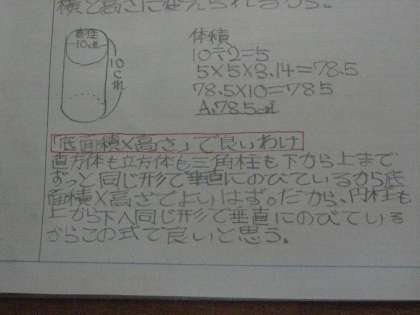 積と高さに変えられるから。
直径
10cm
10cm
体積
10÷2=5
5×5×3.14=78.5
78.5×10=785
A.785cm³
「底面積×高さ」で良いわけ
直方体も立方体も三角柱も下から上まで
ずっと同じ形で垂直にのびているから底
面積×高さでよいはず。だから、円柱も
上から下へ同じ形で垂直にのびている
からこの式で良いと思う。